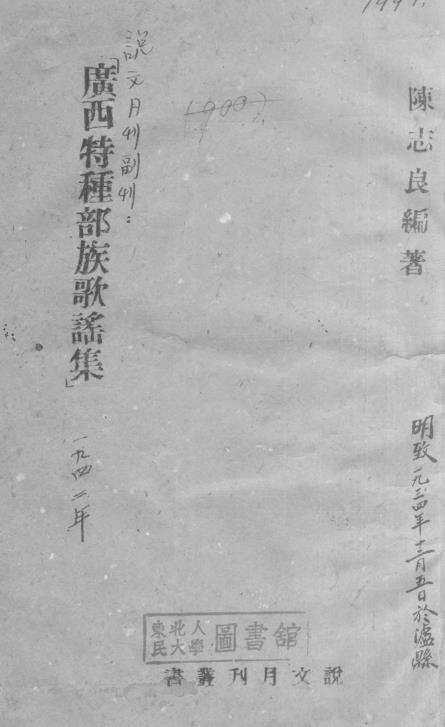 陳志良編著
明致一九三四年十二月五日於瀘縣
說文月刊副刊：
「廣西特種部族歌謠集」
一九四二年
(1900)
東北人民大學圖書舘
說文月刊叢書